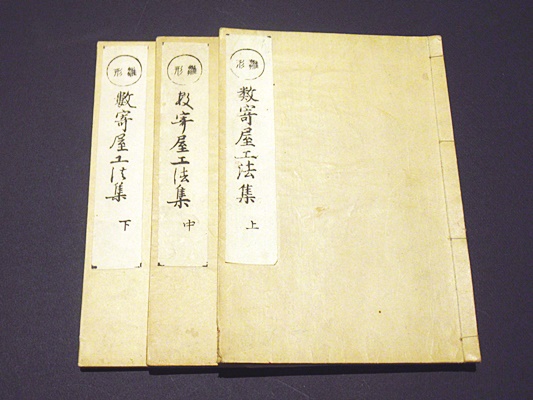 雛形
数寄屋工法集
上
雛形
数寄屋工法集
中
雛形
数寄屋工法集
下